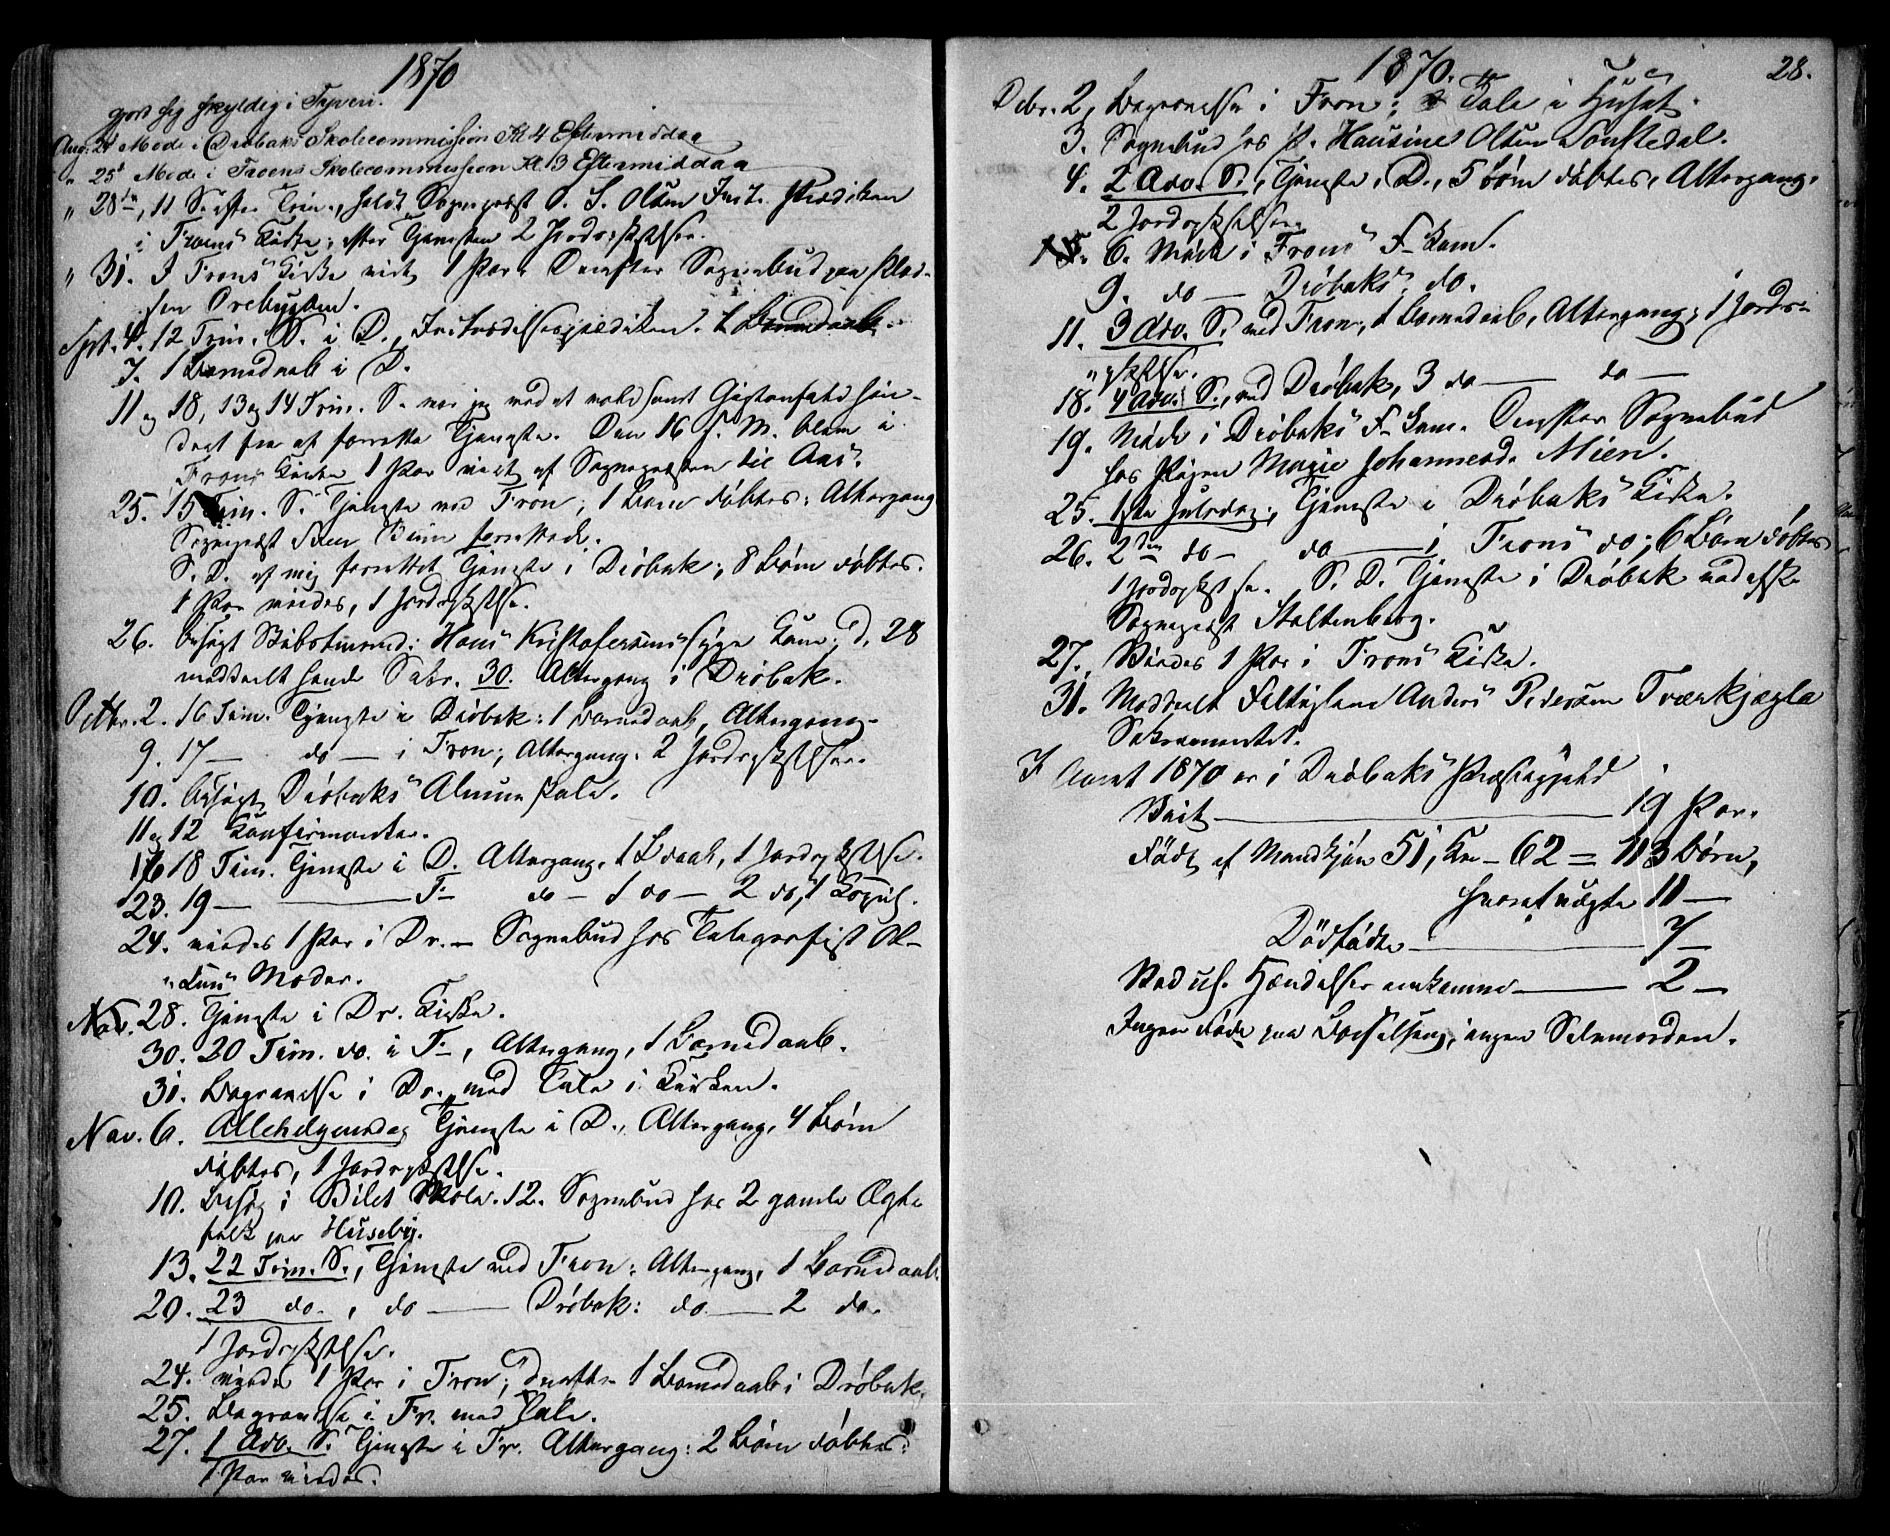 1870
gjort sig skyldig i Tyveri.
Aug: 24 Møde i Drøbaks Skolecommission Kl. 4 Eftermiddag
" 25 Møde i Froens Skolecommission Kl. 3 Eftermiddag
" 28de, 11 S. efter Trin., holdt Sognepræst O. S. Olsen Prædiken
i Froens Kirke; efter Tjeneste 2 Jordpaakastelser.
" 31. I Frons Kirke viet 1 Par. Derefter Sognebud paa Plad-
sen Orebugten.
Sept. 4. 12 Trin. S. i D., Indtrædelsesprædiken. 1 Barnedaab.
7. 1 Barnedaab i D.
11 og 18, 13 og 14 Trin. S. var jeg ved et voldsomt Gigtanfald hin-
dret fra at forrette Tjeneste. Den 16 s. M. blev i
Frons Kirke 1 Par viet af Sognepræsten til Aas.
25. 15 Trin. S. Tjeneste ved Fron; 1 Barn døbtes; Altergang
Sognepræst forrettede.
S. D. af mig forrettet Tjeneste i Drøbak; 8 Børn døbtes.
1 Par viedes, 1 Jordpaakastelse.
26. besøgt Hans Kristofersens syge Kone; d. 28
meddeelt hende Sakr. 30. Altergang i Drøbak.
Octbr. 2. 16 Trin. Tjeneste i Drøbak: 1 Barnedaab, Altergang.
9. 17 — do — i Fron; Altergang. 2 Jordpaakastelser.
10. besøgt Drøbaks Almueskole.
11 og 12 Konfirmanter.
16 18 Trin. Tjeneste i D. Altergang. 1 Bdaab, 1 Jordpaakastelse.
23. 19 — F — do — 1 do — 2 do, 1 Copul.
24. viedes 1 Par i Dr. — Sognebud hos Telegrafist
Moder.
Nov. 28. Tjeneste i Dr. Kirke.
30. 20 Trin. do. i F —, Altergang, 1 Barnedaab.
31. Begravelse i Dr. med Tale i Kirken.
Nov. 6. Allehelgensdag Tjeneste i D., Altergang, 4 Børn
døbtes, 1 Jordpaakastelse.
10. Besøg i Bilet Skole. 12. Sognebud hos 2 gamle Ægte
folk paa Huseby.
13. 22 Trin. S., Tjeneste ved Fron: Altergang, 1 Barnedaab
20. 23 do., do — Drøbak: do — 2 do.
1 Jordpaakastelse.
24. viedes 1 Par i Fron; derefter 1 Barnedaab i Drøbak.
25. Begravelse i Fr. med Tale.
27. 1 Adv. S. Tjeneste i Fr. Altergang: 2 Børn døbtes:
1 Par viedes.
1870. 28.
Debr. 2, Begravelse i Fron; Tale i Huset.
3. Sognebud hos P. Hansine Olsen Tonstedal.
4. 2 Adv. S., Tjeneste i D., 5 Børn døbtes, Altergang.
2 Jordpaakastelser.
6. Møde i Frons F-Kom.
9. do — Drøbaks do.
11. 3 Adv. S. ved Fron, 1 Barnedaab, Altergang, 1 Jordpa-
kastelse.
18. 4 Adv. S., ved Drøbak, 3 do — do —
19. Møde i Drøbaks F-Kom. Derefter Sognebud
hos Pigen Marie Johannesd. Mien.
25. 1ste Juledag; Tjeneste i Drøbaks Kirke.
26. 2den do — do — i Frons do; 6 Børn døbtes
1 Jordpaakastelse. S. D. Tjeneste i Drøbak ved afsk.
Sognepræst Stoltenberg.
27. Viedes 1 Par i Frons Kirke.
31. Meddeelt Anders Pedersen Tværkjægla
Sakramentet.
I Aaret 1870 er i Drøbaks Præstegjæld
Viet — 19 Par.
Født af Mandkjøn 51, Kv — 62 = 113 Børn,
hvoraf uægte 11 —
Dødfødte — 7 —
Ved ul. Hændelser omkomne — 2 —
Ingen døde paa Barselseng, ingen Selvmordere.